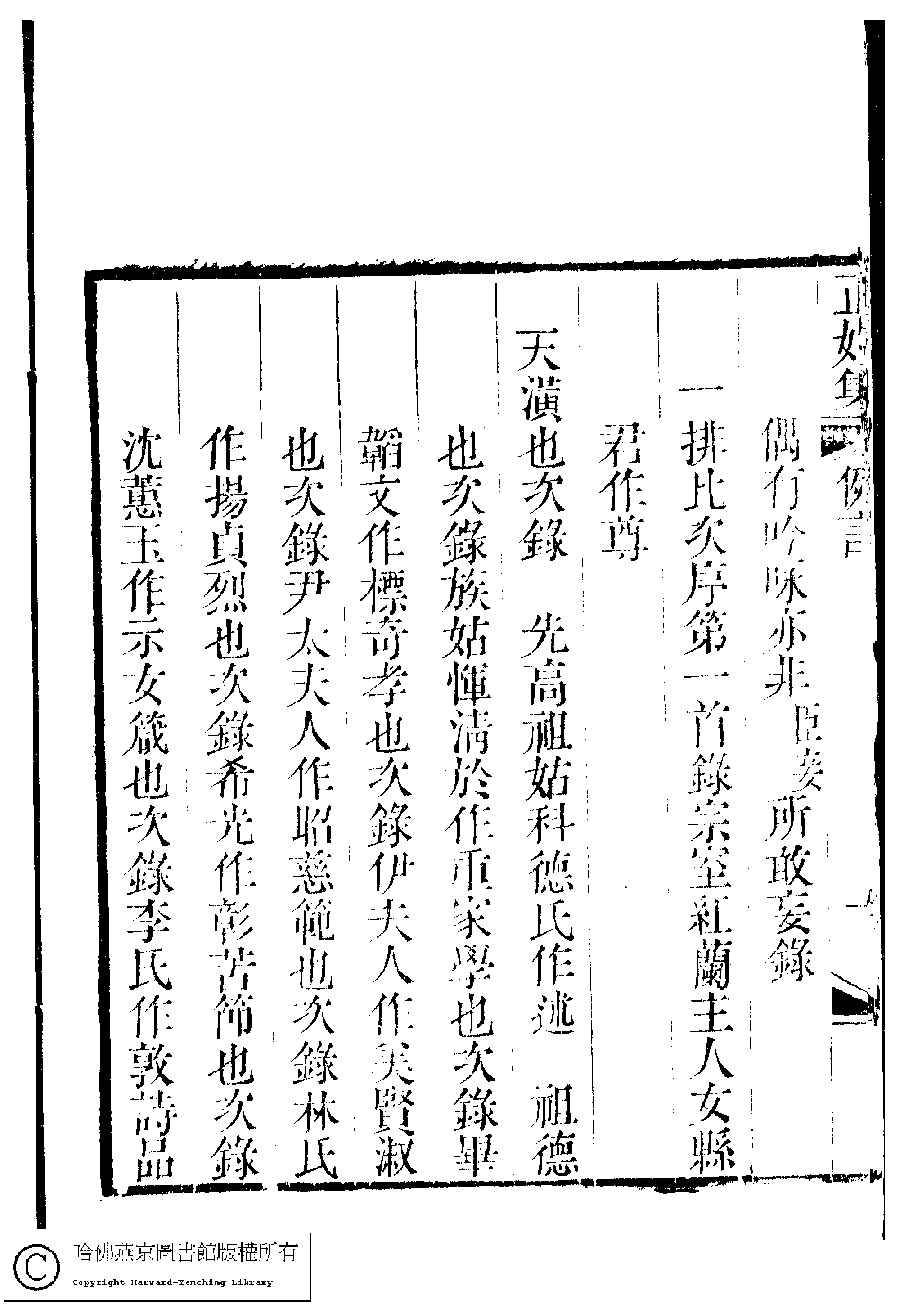 正始集
例言
一
偶有吟咏亦非臣妾所敢妄錄
一排比次序第一首錄宗室紅蘭主人女縣
君作尊
天潢也次錄　先高祖姑科德氏作述　祖德
也次錄族姑惲淸於作重家學也次錄畢
韜文作標奇孝也次錄伊夫人作美賢淑
也次錄尹太夫人作昭慈範也次錄林氏
作揚貞烈也次錄希光作彰苦節也次錄
沈蕙玉作示女箴也次錄李氏作敦詩品
哈佛燕京圖書館版權所有
Copyright Harvard-Yenching Library